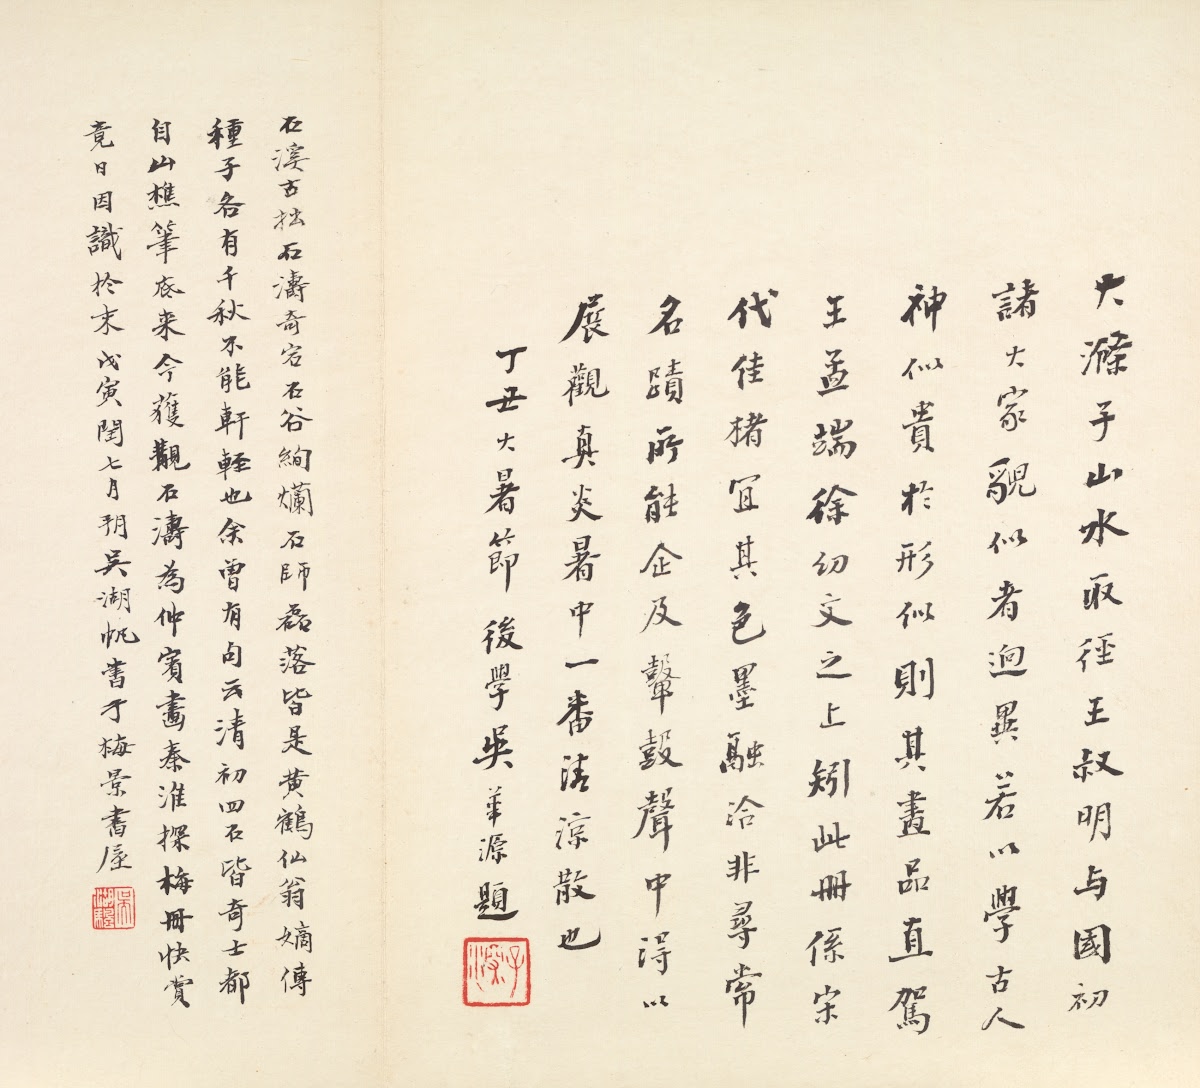 大滌子山水取徑王叔明与國初
諸大家貌似者迥異若以學古人
神似貴於形似則其畫品直駕
王孟端徐幼文之上矧此冊係宋
代佳楮宜其色墨融洽非尋常
名蹟所能企及鼙鼓聲中得以
展觀真炎暑中一番清涼散也
丁丑大暑節後學吳華源題
子深
石溪古拙石濤奇宕石谷絢爛石師磊落皆是黃鶴仙翁嫡傳
種子各有千秋不能軒輊也余曾有句云清初四石皆奇士都
自山樵筆底来今獲觀石濤為仲賓畫秦淮探梅冊快賞
竟日因識於末戊寅閏七月朔吳湖帆書于梅景書屋
吳湖颿